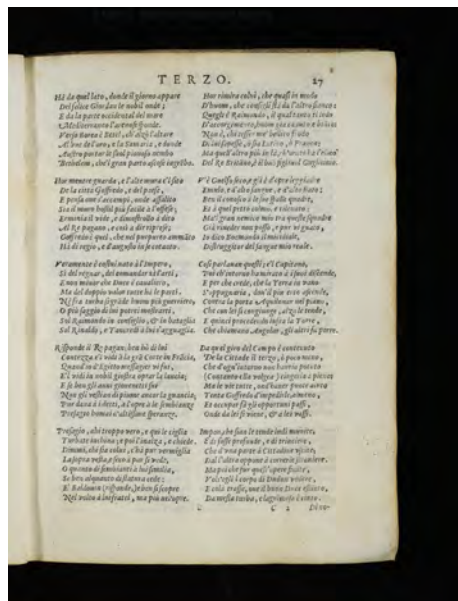 TERZO. 27
Hà da quel lato, donde il giorno appare
Del felice Giordan le nobil onde;
E da la parte occidental del mare
Mediterraneo l'arenose sponde.
Verso Borea è Betel, ch'alzò l'altare
Al bue de l'oro, e la Samaria, e donde
Austro portar le suol piouoso nembo
Betheleem, che'l gran parto ascose in grembo.
Hor mentre guarda, e l'alte mura e'l sito
De la città Goffredo, e del paese,
E pensa oue s'accampi, onde assalito
Sia il muro hostil più facile à l'offese;
Erminia il vide, e dimostrollo à dito
Al Rè pagano, e così à dir riprese;
Goffredo è quel, che nel purpureo ammanto
Hà di regio, e d'augusto in se cotanto.
Veramente è costui nato à l'Impero,
Sì del regnar, del commandar sà l'arti,
E non minor che Duce è caualiero,
Ma del doppio valor tutte hà le parti.
Nè fra turba sì grãde huom più guerriero,
O più saggio di lui potrei mostrarti.
Sol Raimondo in consiglio, & in battaglia
Sol Rinaldo, e Tancredi à lui s'agguaglia.
Risponde il Rè pagan; ben hò di lui
Contezza, e'l vidi à la grã Corte in Francia,
Quand'io d'Egitto messaggier vi fui,
E'l vidi in nobil giostra oprar la lancia;
E se ben gli anni giouenetti sui
Non gli vestian di piume ancor la guancia,
Pur daua à i detti, à l'opre à le sembianze
Presagio homai d'altissime speranze.
Presagio, ahi troppo vero, e quì le ciglia
Turbate inchina, e poi l'inalza, e chiede.
Dimmi, chi sia colui, c'hà pur vermiglia
La sopra vesta, e seco à par si vede,
O quanto di sembianti à lui simiglia,
Se ben alquanto di statura cede;
E' Baldouin (risponde,) e ben si scopre
Nel volto à lui fratel, ma più ne l'opre.
Hor rimira colui, che quasi in modo
D'huom, che consigli stà da l'altro fianco;
Quegli è Raimondo, il qual tanto ti lodo
D'accorgimento, huom già canuto e bianco
Non è, chi tesser me' bellico frodo
Di lui sapesse, ò sia Latino, ò Franco;
Ma quell'altro più in là, c'hà orato l'elmo
Del Rè Britãno, è il buõ figliuol Guglielmo.
V'è Guelfo seco, e gli è d'opre leggiadre
Emulo, e d'alto sangue, e d'alto stato;
Ben il conosco à le sue spalle quadre,
Et à quel petto colmo, e rileuato;
Ma'l gran nemico mio tra queste squadre
Già riueder non posso, e pur vi guato,
Io dico Boemondo il micidiale,
Distruggitor del sangue mio reale.
Così parlauan questi; e'l Capitano,
Poi ch'intorno hà mirato à i suoi discende,
E per che crede, che la Terra in vano
S'oppugnaria, dou'il più erto ascende,
Contra la porta Aquilonar nel piano,
Che con lei si congiunge, alza le tende,
E quinci procedendo infra la Torre,
Che chiamano Angolar, gli altri fà porre.
Da quel giro del Campo è contenuto
De la Cittade il terzo, ò poco meno,
Che d'ogn'intorno non hauria potuto
(Cotanto ella volgea) cingerla à pieno;
Ma le vie tutte, ond'hauer puote aiuto
Tenta Goffredo d'impedirle almeno,
Et occupar fà gli opportuni passi,
Onde da lei si viene, & à lei vassi.
Impon, che sian le tende indi munite,
E di fosse profonde, e di trinciere,
Che d'una parte à Cittadine vscite,
Da l'altra oppone à correrie straniere.
Ma poi che fur quest'opere finite,
Vols'egli il corpo di Dudon vedere,
E colà trasse, oue il buon Duce estinto,
Da mesta turba, e lagrimosa è cinto.
C 2 Di no-